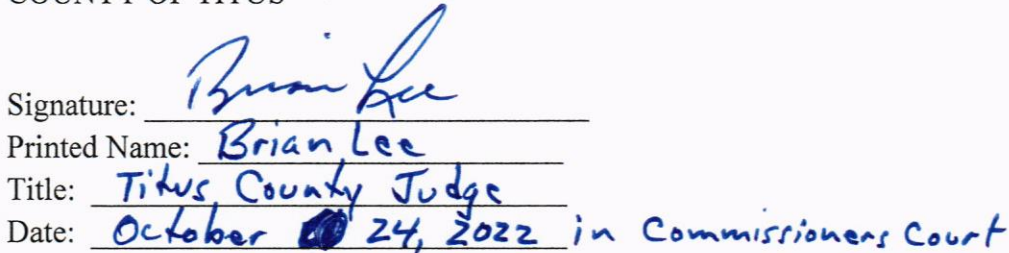 COUNTY OF TITUS
Signature: Brian Lee
Printed Name: Brian Lee
Title: Titus County Judge
Date: October 24, 2022 in Commissioners Court